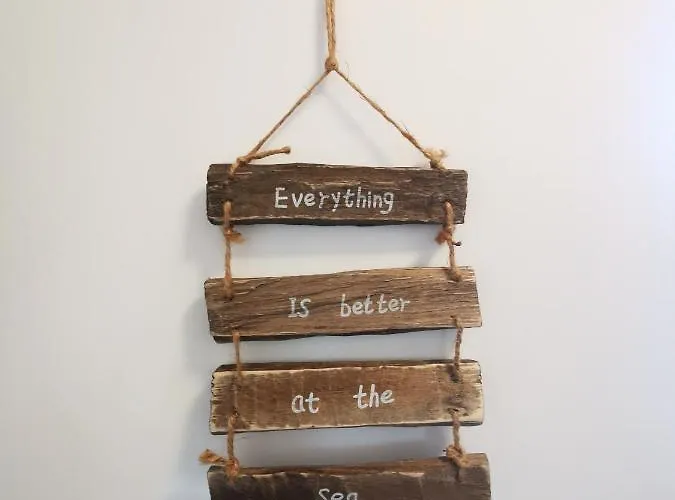 Everything
IS better
at the
Sea